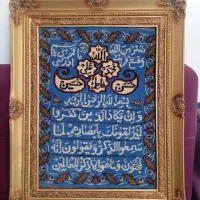 نصر من الله
وفتح قريب
الله
محمد
حسن حسين
بسم الله الرحمن الرحيم
وان يكاد الذين كفروا
ليزلقونك بابصارهم لما
سمعوا الذكر و يقولون انه
لمجنون وما هو الا ذكر للعالمين